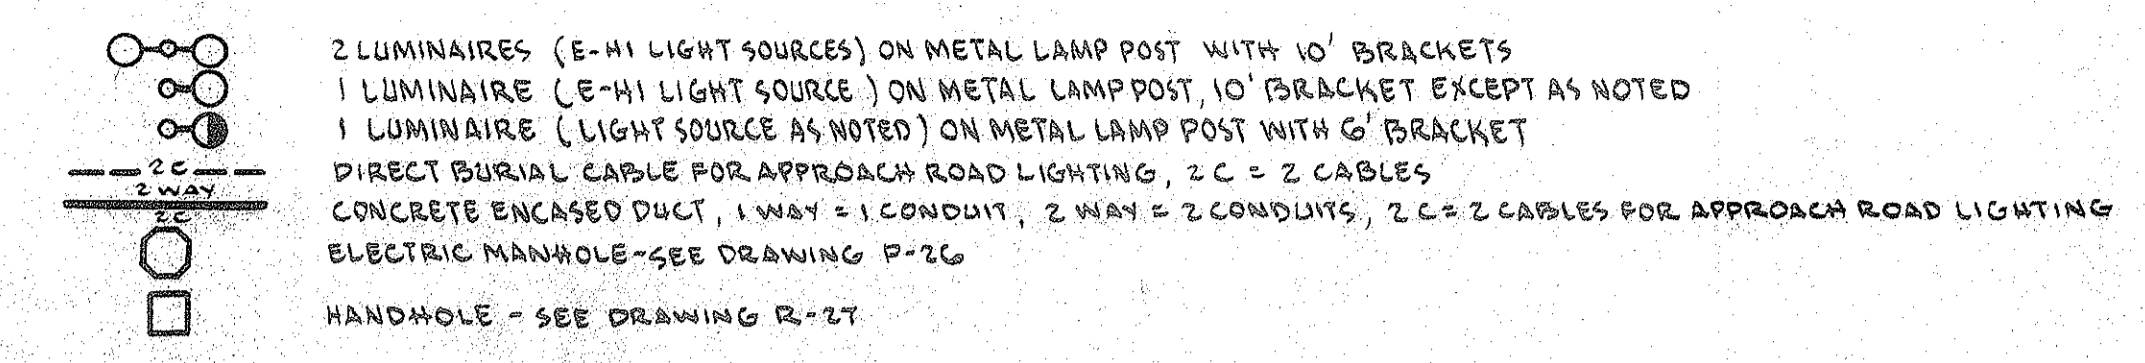 2 LUMINAIRES (E-HI LIGHT SOURCES) ON METAL LAMP POST WITH 10' BRACKETS
1 LUMINAIRE (E-HI LIGHT SOURCE) ON METAL LAMP POST, 10' BRACKET EXCEPT AS NOTED
1 LUMINAIRE (LIGHT SOURCE AS NOTED) ON METAL LAMP POST WITH 6' BRACKET
2 C DIRECT BURIAL CABLE FOR APPROACH ROAD LIGHTING, 2 C = 2 CABLES
2 WAY
2 C
CONCRETE ENCASED DUCT, 1 WAY = 1 CONDUIT, 2 WAY = 2 CONDUITS, 2 C = 2 CABLES FOR APPROACH ROAD LIGHTING
ELECTRIC MANHOLE-SEE DRAWING P-26
HANDHOLE - SEE DRAWING R-27